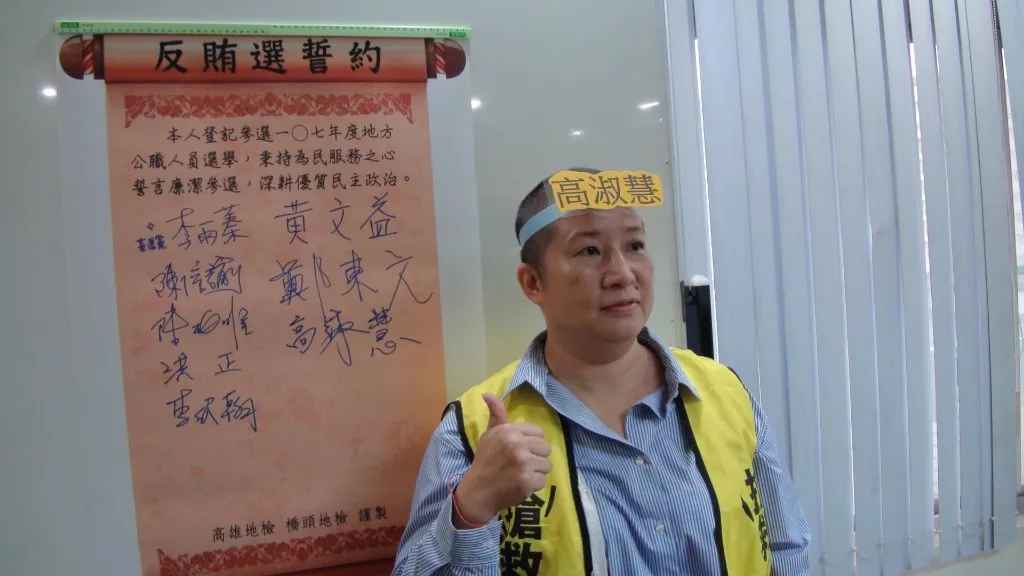 反賄選誓約
本人登記參選一〇七年度地方
公職人員選舉，秉持為民服務之心
誓言廉潔參選，深耕優質民主政治。
李雨蓁
黃文益
陳信瑜
鄭東元
陳柏惟
高淑慧
洪正
高雄地檢 橋頭地檢 謹製
高淑慧
搶救